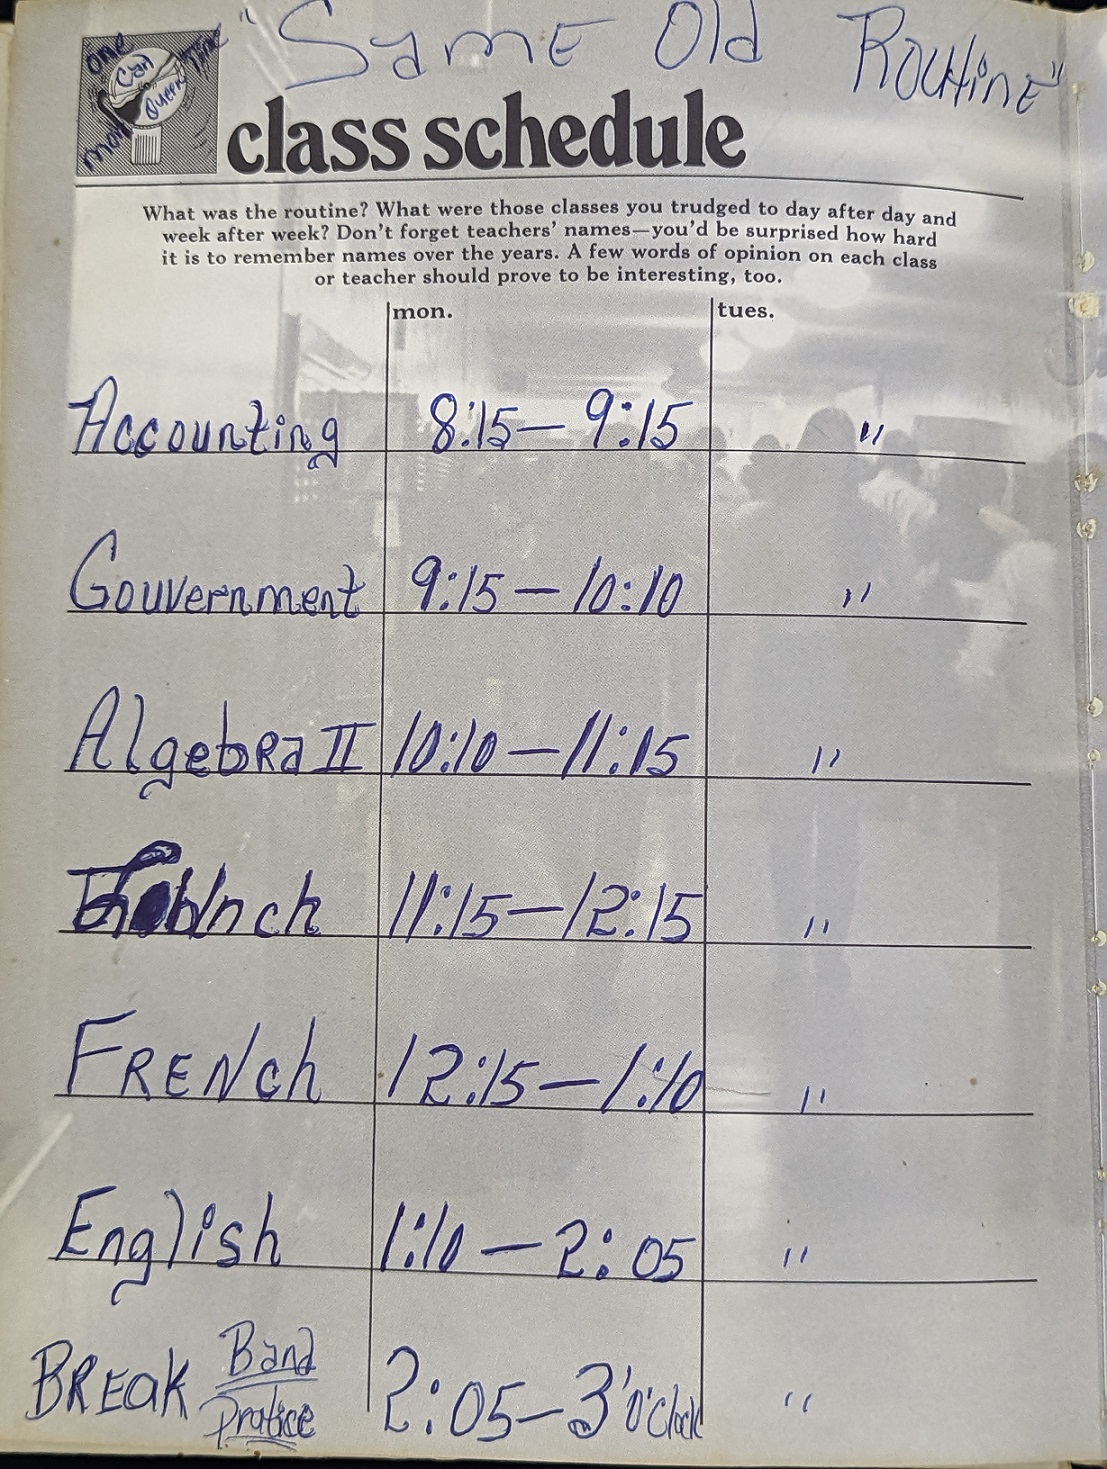 "Same Old Routine"
one
More
Time
class schedule
What was the routine? What were those classes you trudged to day after day and
week after week? Don't forget teachers' names—you'd be surprised how hard
it is to remember names over the years. A few words of opinion on each class
or teacher should prove to be interesting, too.
mon. tues.
Accounting 8:15—9:15 "
Gouvernment 9:15—10:10 "
Algebra II 10:10—11:15 "
11:15—12:15 "
FRENch 12:15—1:10 "
English 1:10—2:05 "
BREak Band Pratice 2:05—3'O'Clock "